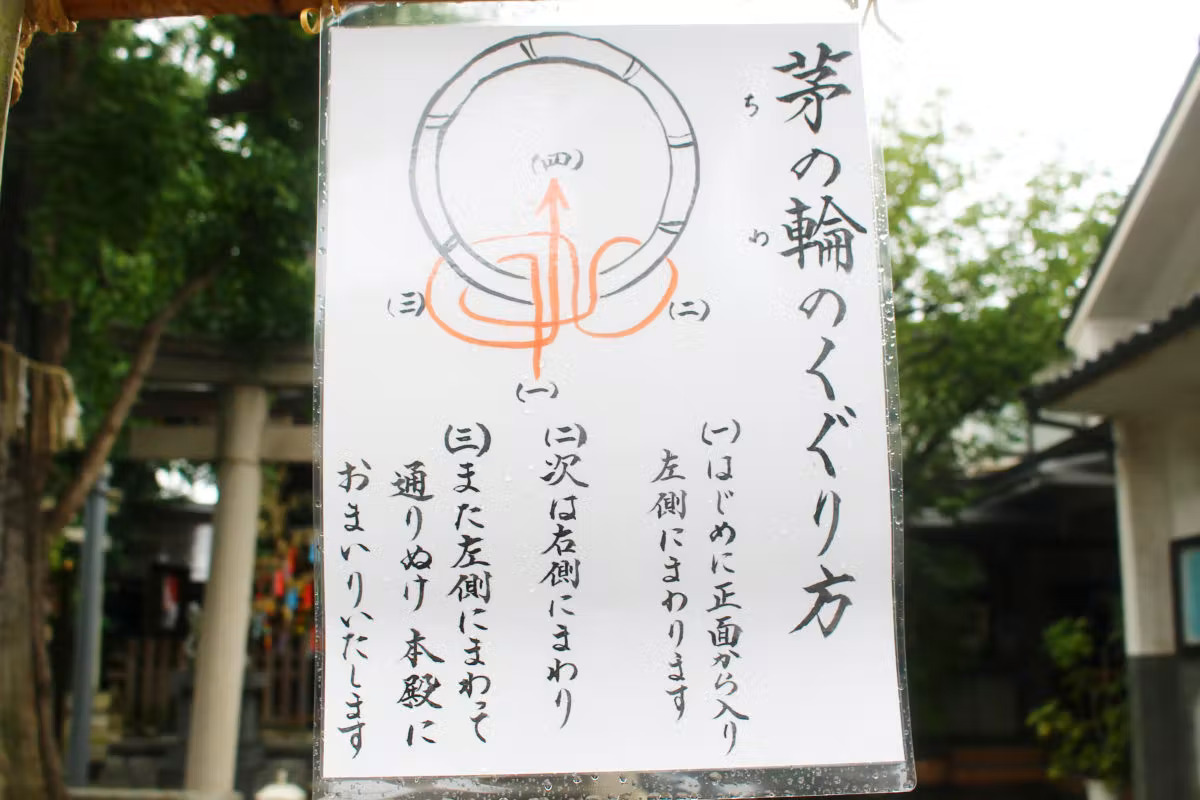 茅の輪のくぐり方
ち
わ
(四)
(三)
(二)
(一)
(一)はじめに正面から入り
左側にまわります
(二)次は右側にまわり
(三)また左側にまわって
通りぬけ 本殿に
おまいりいたします